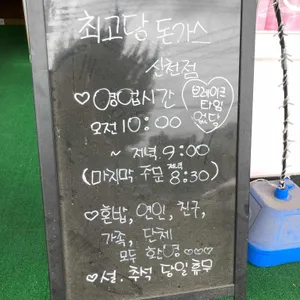 최고당 돈가스
신천점
♡영업시간
브레이크
타임
없당
오전 10:00
~ 저녁 9:00
(마지막 주문 저녁 8:30)
♡혼밥, 연인, 친구,
가족, 단체
모두 환영♡♡♡
♥설.추석 당일휴무